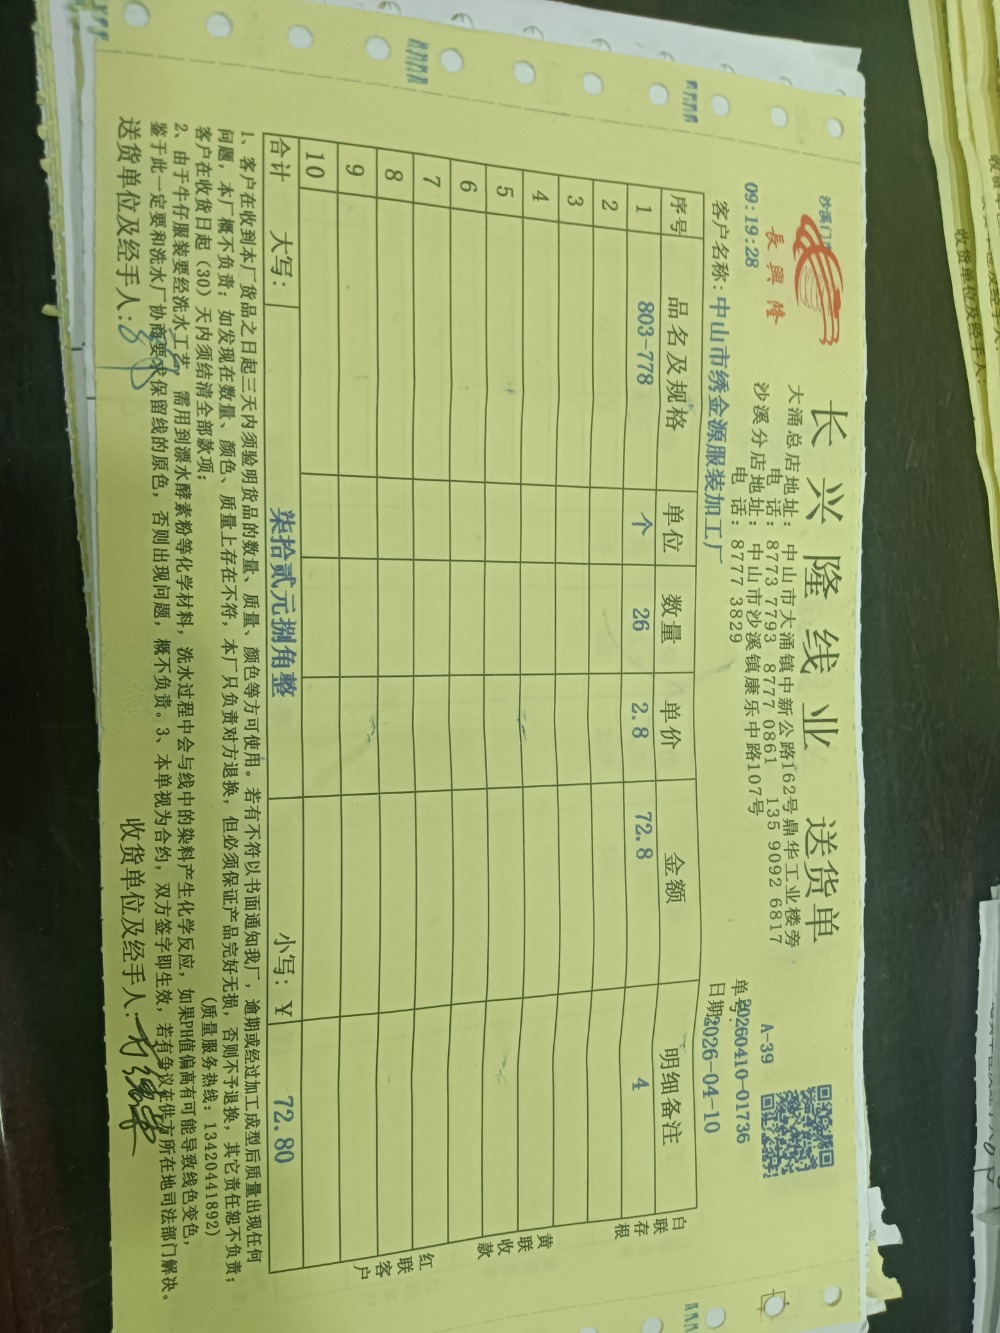 沙溪门市
長興隆
09:19:28
长兴隆线业 送货单
大涌总店地址：中山市大涌镇中新公路162号鼎华工业楼旁
电 话：8773 7793 8777 0861 135 9092 6817
沙溪分店地址：中山市沙溪镇康乐中路107号
电 话：8777 3829
A-39
单号：20260410-01736
日期：2026-04-10
客户名称：中山市绣金源服装加工厂
序号 品名及规格 单位 数量 单价 金额 明细备注
1 803-778 个 26 2.8 72.8 4
2
3
4
5
6
7
8
9
10
合计 大写： 柒拾贰元捌角整 小写：￥ 72.80
白联存根
黄联收款
红联客户
1、客户在收到本厂货品之日起三天内须验明货品的数量、质量、颜色等方可使用。若有不符以书面通知我厂，逾期或经过加工成型后质量出现任何
问题，本厂概不负责；如发现在数量、颜色、质量上存在不符，本厂只负责对方退换，但必须保证产品完好无损，否则不予退换，其它责任恕不负责；
客户在收货日起（30）天内须结清全部款项； （质量服务热线：13420441892）
2、由于牛仔服装要经洗水工艺，需用到漂水酵素粉等化学材料，洗水过程中会与线中的染料产生化学反应，如果PH值偏高有可能导致线色变色，
鉴于此一定要和洗水厂协商要求保留线的原色，否则出现问题，概不负责。3、本单视为合约，双方签字即生效，若有争议在供方所在地司法部门解决。
送货单位及经手人： 收货单位及经手人：
收货单位及经手人：